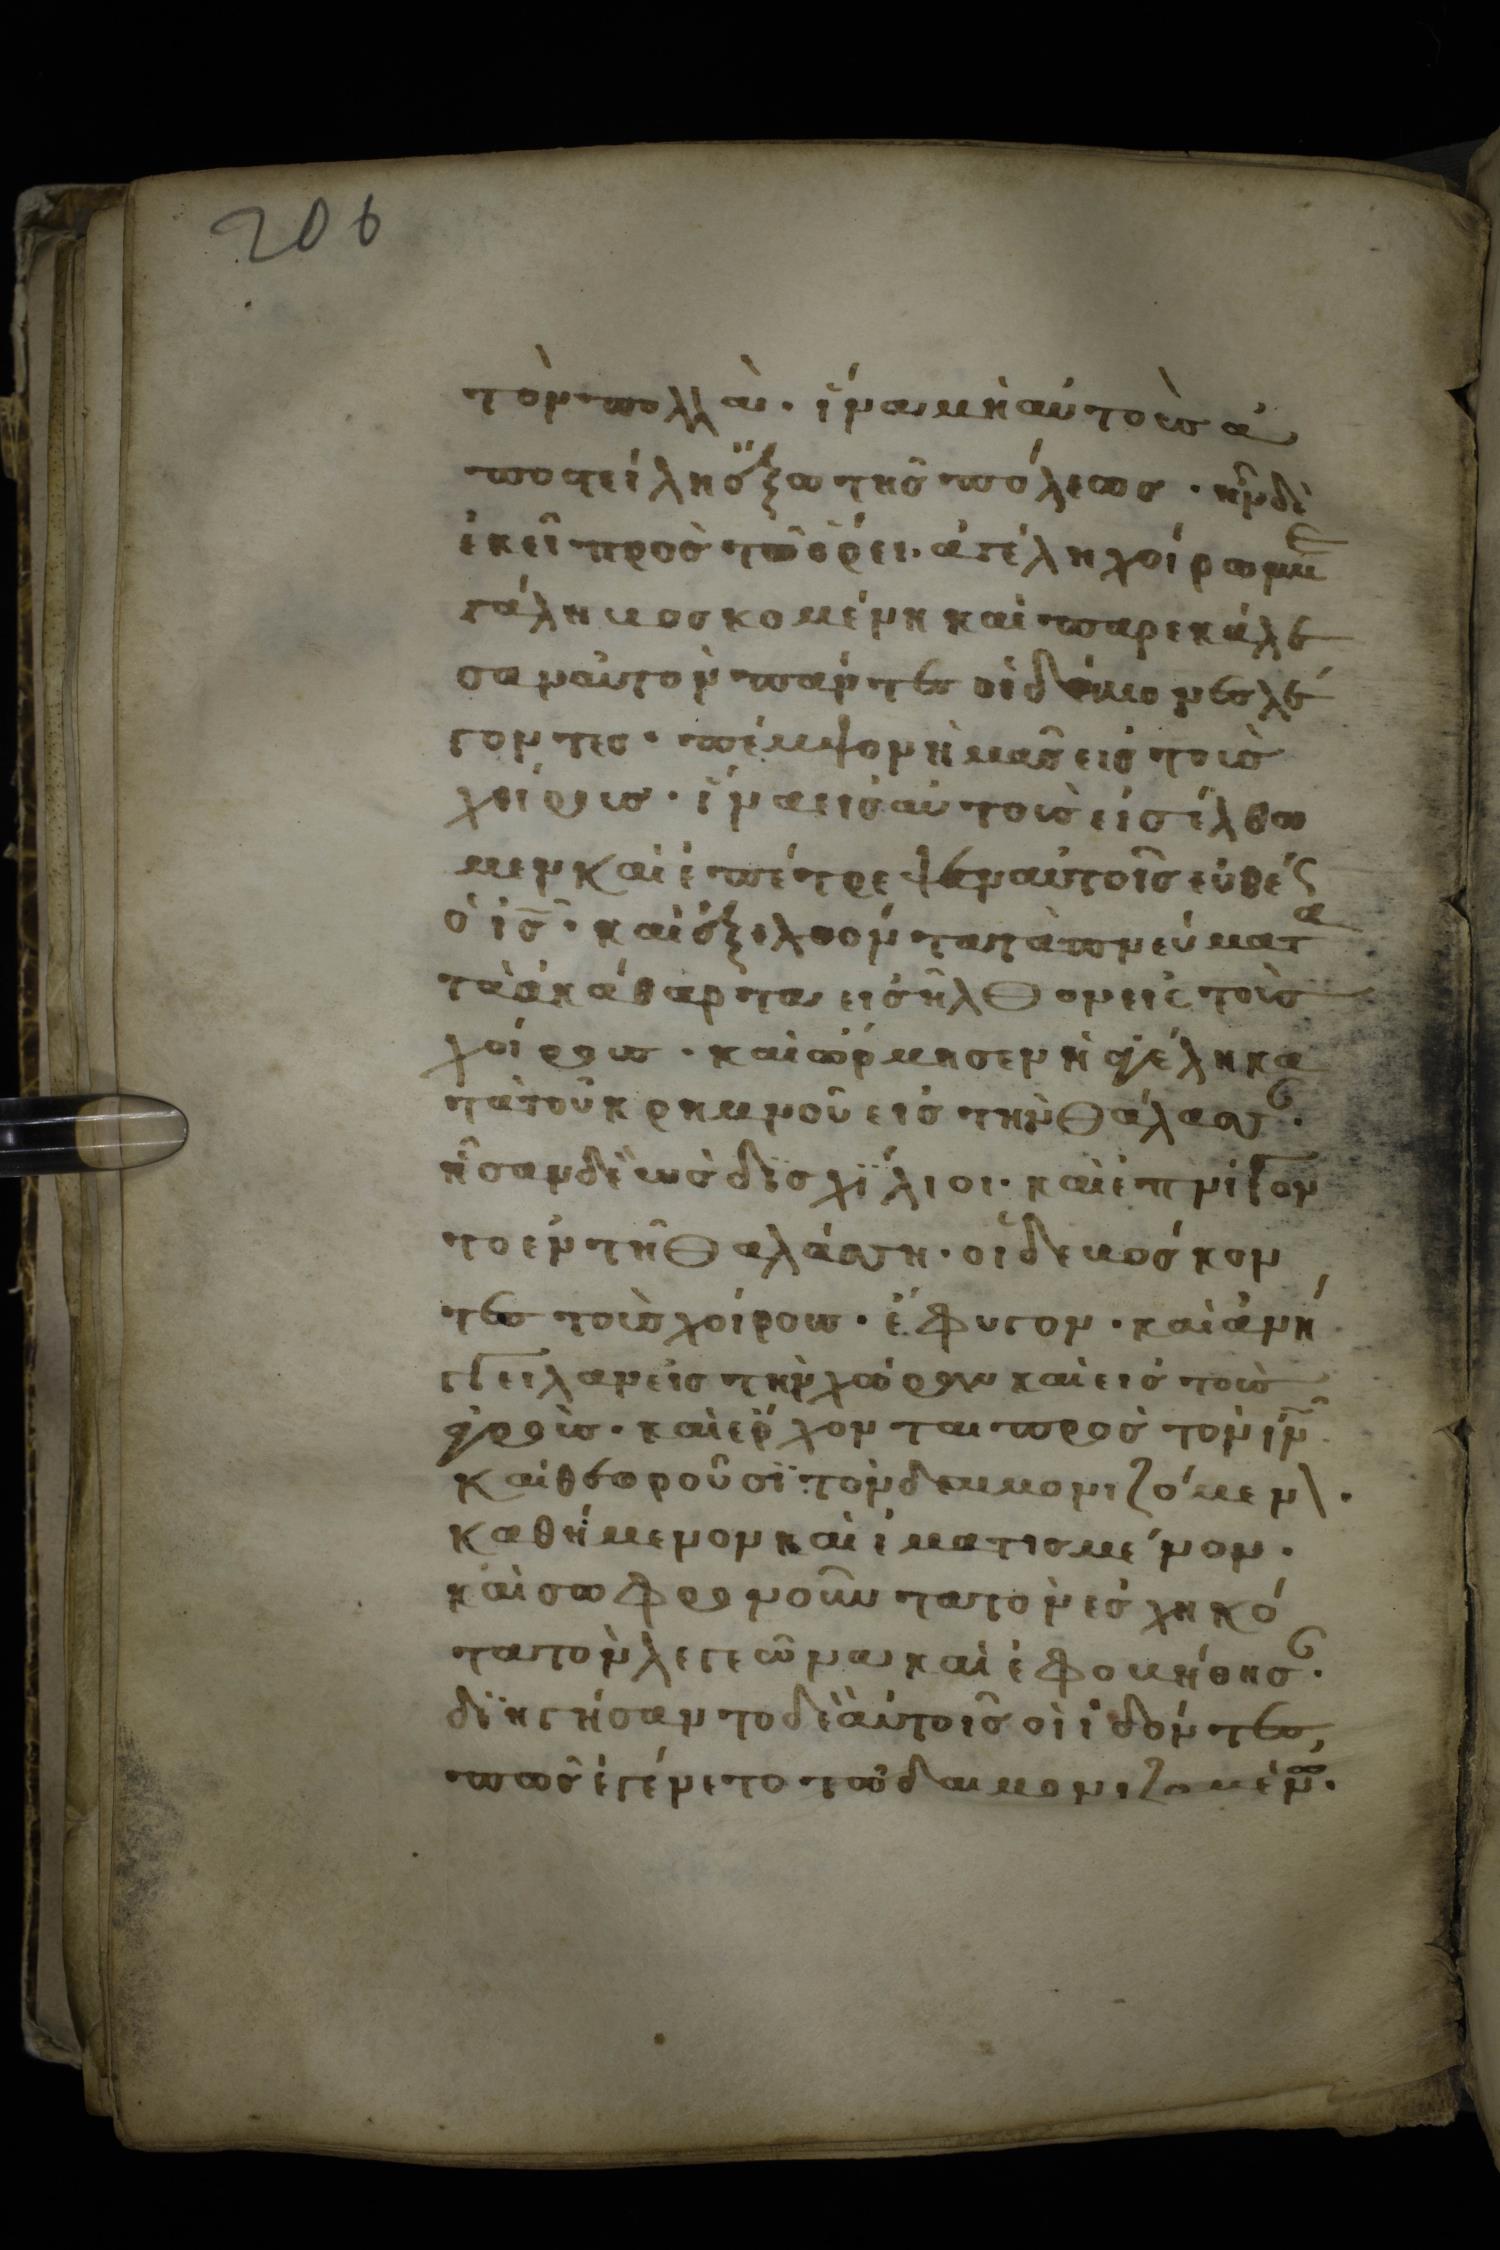 206
τὸν πολλὰ· ἵνα μὴ αὐτοὺς ἀ
ποστείλη ἔξω τῆς πόλεως· ἦν δὲ
ἐκεῖ πρὸς τῶ ὄρει· ἀγέλη χοίρων με
γάλη βοσκομένη καὶ παρεκάλε
σαν αὐτὸν πάντες οἱ δαίμονες λέ
γοντες· πέμψον ἡμᾶς εἰς τοὺς
χοίρους· ἵνα εἰς αὐτοὺς εἰσέλθω
μεν καὶ ἐπέτρεψεν αὐτοῖς εὐθές
ὁ ἰς· καὶ ἐξελθόντα τὰ πνεύματα
τὰ ἀκάθαρτα εἰσῆλθον εἰς τοὺς
χοίρους· καὶ ὥρμησεν ἡ ἀγέλη κα
τὰ τοῦ κρημνοῦ εἰς τὴν θάλασσ·
ἦσαν δὲ ὡς δϊσχΐλιοι· καὶ ἐπνίγον
το ἐν τῆ θαλάσση· οἱ δὲ βόσκον
τες τοὺς χοίρους· ἔφυγον· καὶ ἀνή
γγειλαν εἰς τὴν χώραν καὶ εἰς τοὺς
ἀγροὺς· καὶ ἔρχονται πρὸς τὸν ἰν
καὶ θεωροῦσϊ τὸν δαιμονιζόμεν\·
καθήμενον καὶ ἱματισμένον·
καὶ σωφρονοῦντα τὸν ἐσχηκό
τα τὸν λεγεῶνα καὶ ἐφοβήθησ·
δϊηγήσαντο δὲ αὐτοῖς οἱ ἰδόντες,
πῶς ἐγένετο τῶ δαιμονιζομένω·